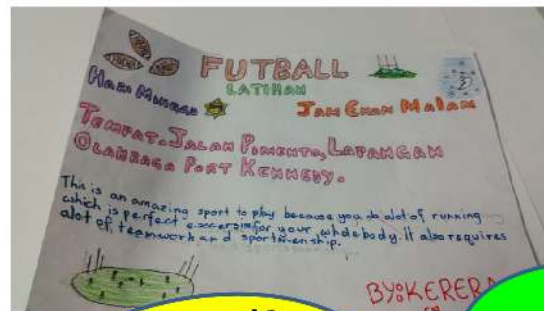 FUTBALL
LATIHAN
HARI MINGGU
JAM ENAM MALAM
TEMPAT: JALAN PIMENTO, LAPANGAN
OLAHRAGA PORT KENNEDY.
This is an amazing sport to play because you do alot of running
which is perfect for your whole body. It also requires
alot of teamwork and sportmenship.
BY: KERERA